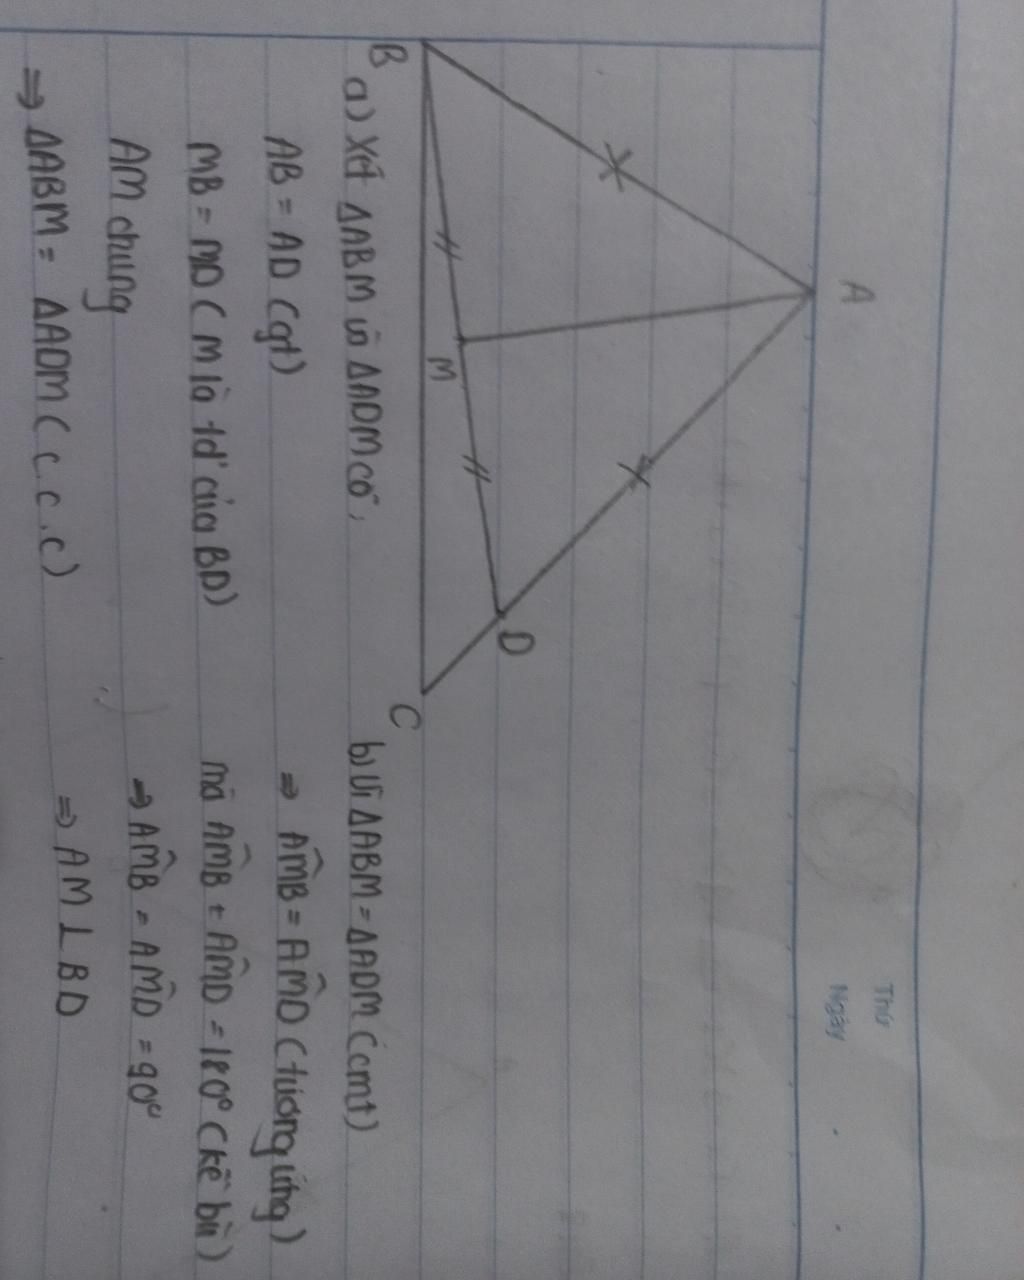 Thứ
Ngày
A
B
M
D
C
a) Xét ΔABM và ΔADM có,
AB = AD (gt)
MB = MD (M là tđ' của BD)
AM chung
⇒ ΔABM = ΔADM (c.c.c)
b) Vì ΔABM = ΔADM (cmt)
⇒ AM̂B = AM̂D (tương ứng)
mà AM̂B + AM̂D = 180° (kề bù)
⇒ AM̂B = AM̂D = 90°
⇒ AM ⊥ BD